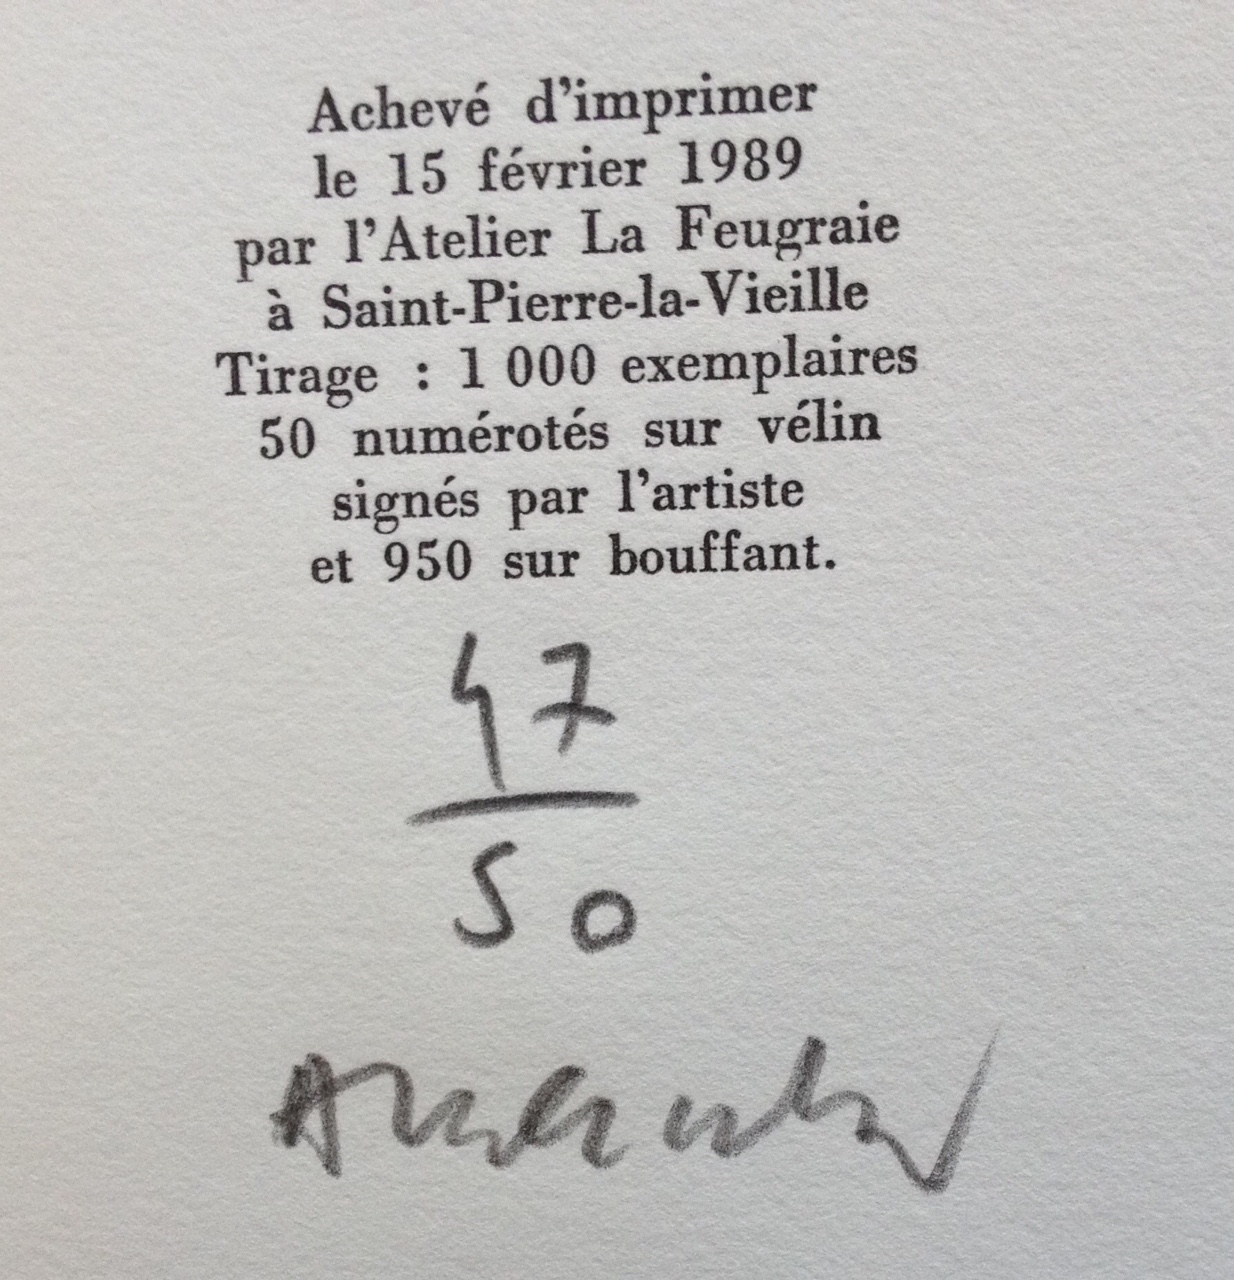 Achevé d'imprimer
le 15 février 1989
par l'Atelier La Feugraie
à Saint-Pierre-la-Vieille
Tirage : 1 000 exemplaires
50 numérotés sur vélin
signés par l'artiste
et 950 sur bouffant.
47
50